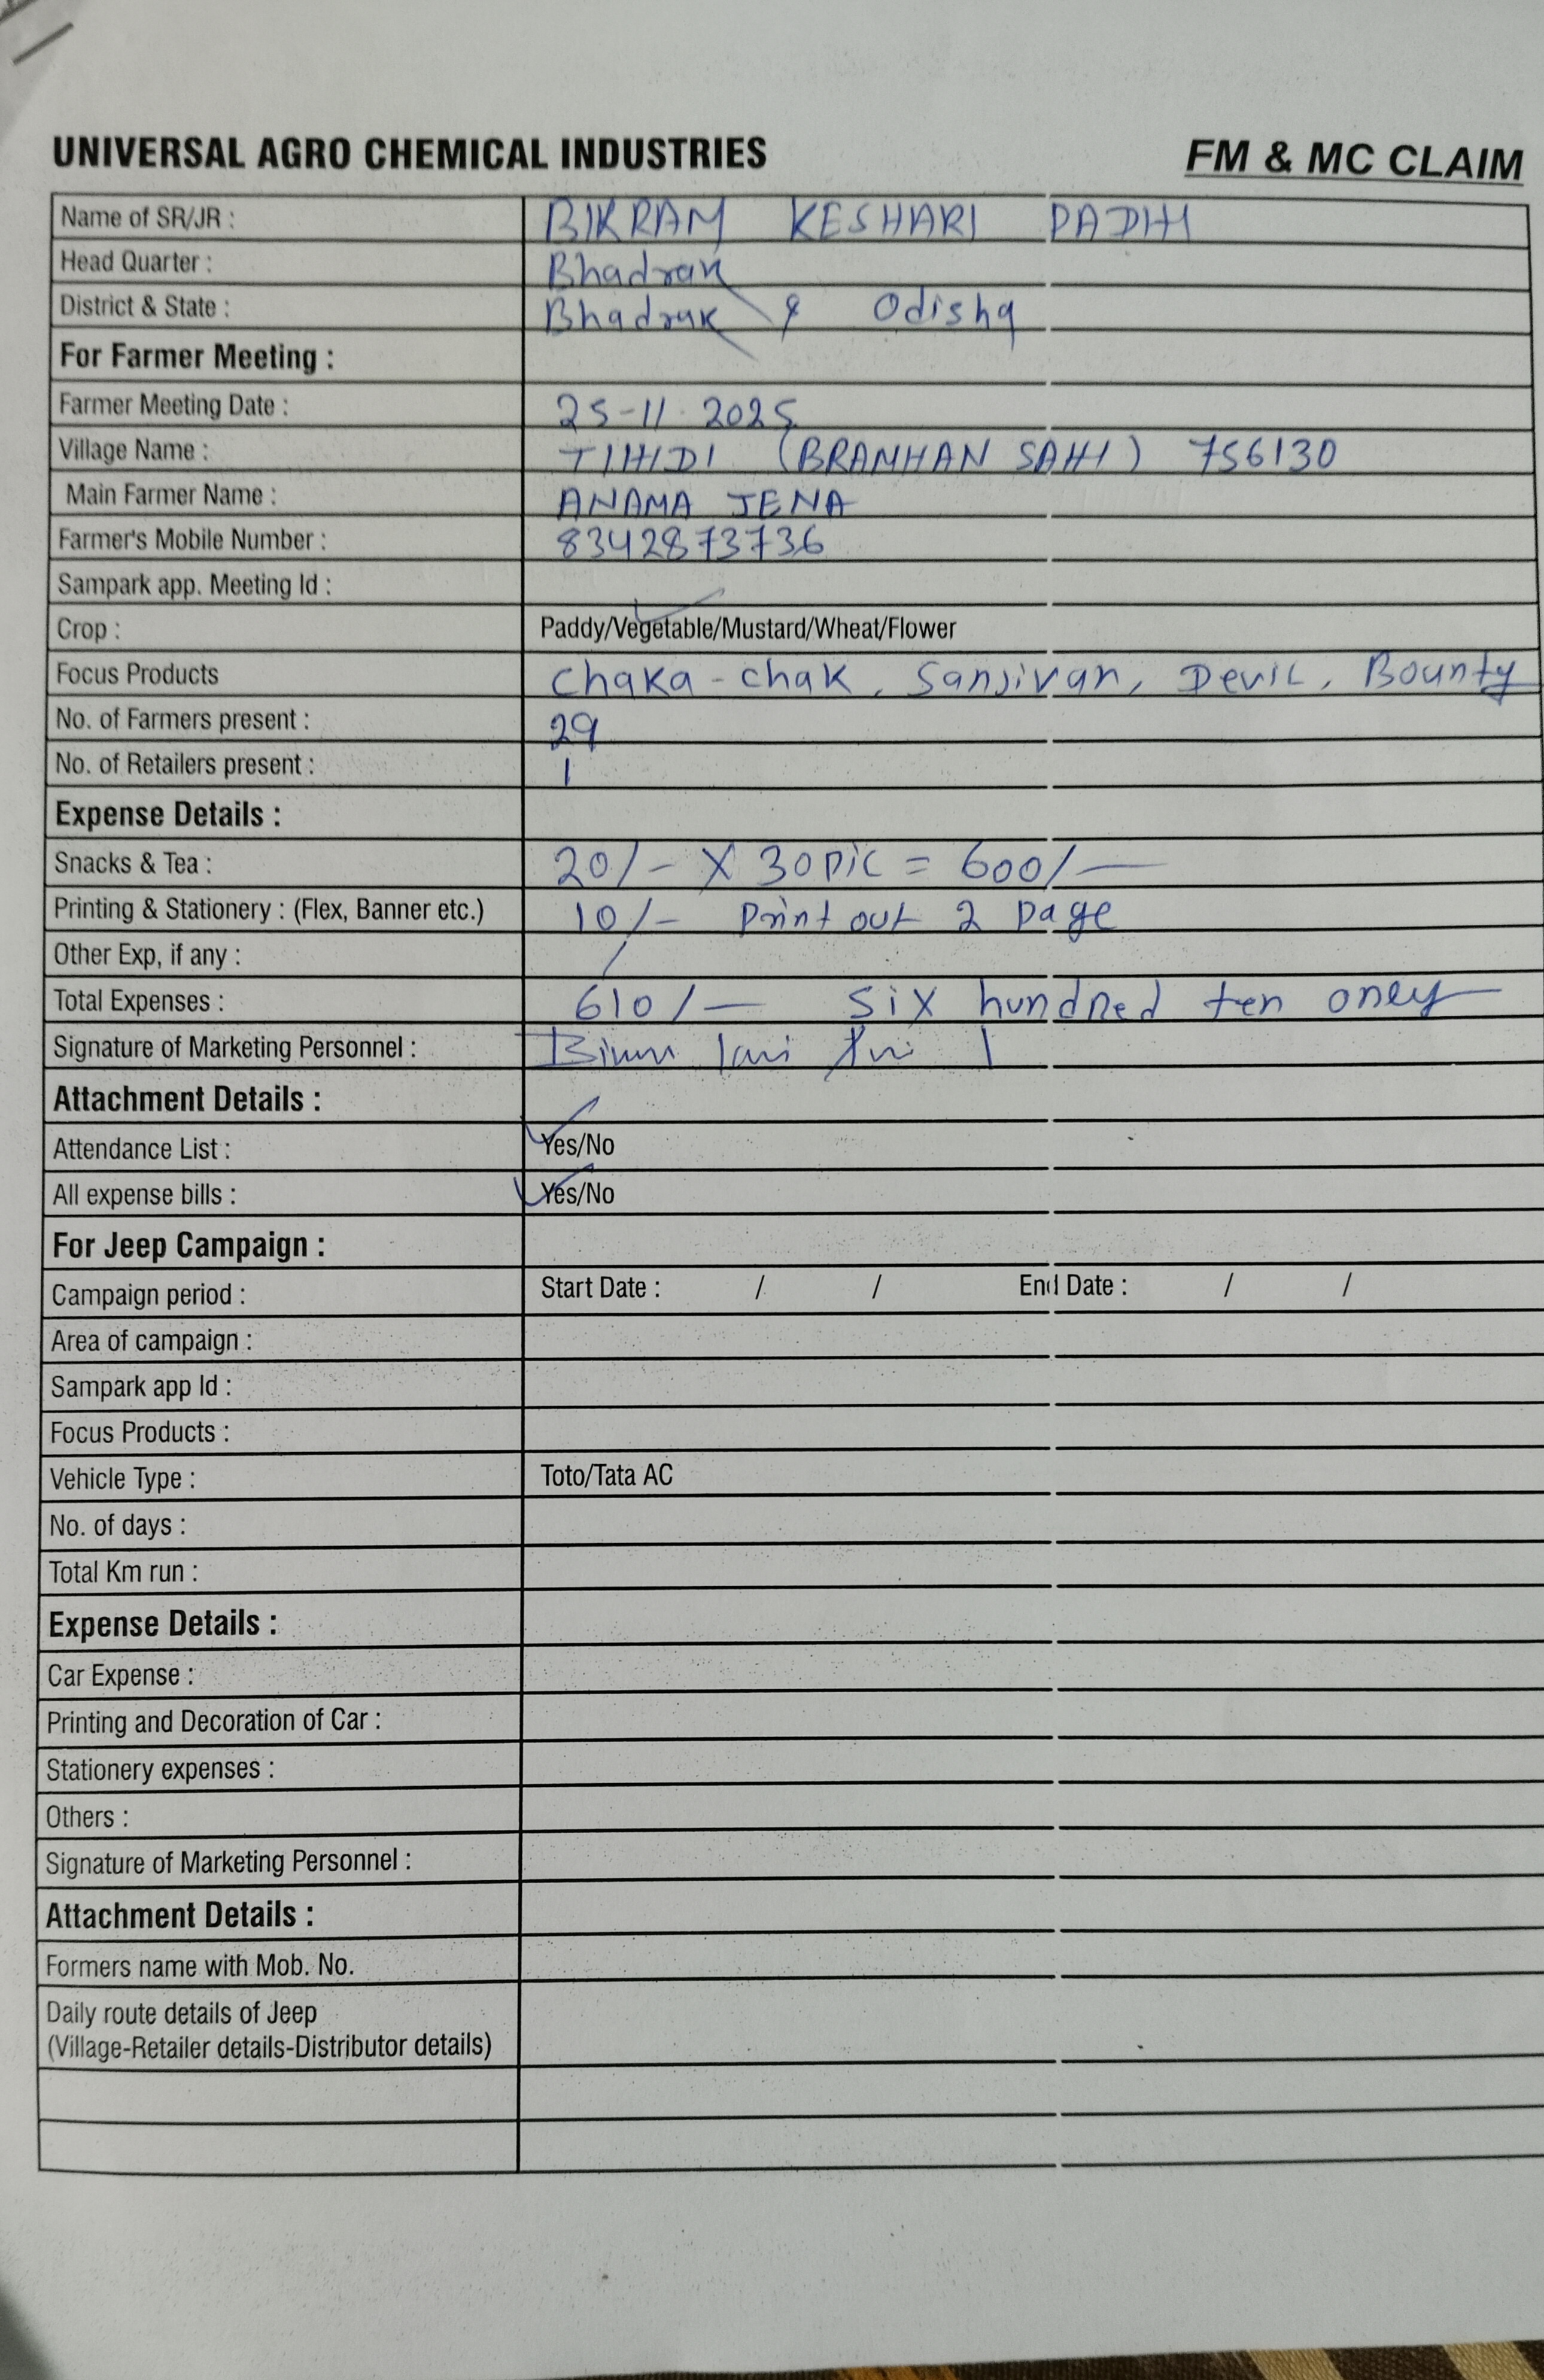 UNIVERSAL AGRO CHEMICAL INDUSTRIES FM & MC CLAIM
Name of SR/JR : BIKRAM KESHARI PADHI
Head Quarter : Bhadrak
District & State : Bhadrak & Odisha
For Farmer Meeting :
Farmer Meeting Date : 25-11-2025
Village Name : TIHIDI (BRAMHAN SAHI) 756130
Main Farmer Name : ANAMA JENA
Farmer's Mobile Number : 8342873736
Sampark app. Meeting Id :
Crop : Paddy/Vegetable/Mustard/Wheat/Flower
Focus Products Chaka-chak, Sanjivan, Devil, Bounty
No. of Farmers present : 29
No. of Retailers present : 1
Expense Details :
Snacks & Tea : 20/- X 30 pic = 600/-
Printing & Stationery : (Flex, Banner etc.) 10/- Print out 2 page
Other Exp, if any : /
Total Expenses : 610/- Six hundred ten oney
Signature of Marketing Personnel :
Attachment Details :
Attendance List : Yes/No
All expense bills : Yes/No
For Jeep Campaign :
Campaign period : Start Date : / / End Date : / /
Area of campaign :
Sampark app Id :
Focus Products :
Vehicle Type : Toto/Tata AC
No. of days :
Total Km run :
Expense Details :
Car Expense :
Printing and Decoration of Car :
Stationery expenses :
Others :
Signature of Marketing Personnel :
Attachment Details :
Formers name with Mob. No.
Daily route details of Jeep
(Village-Retailer details-Distributor details)